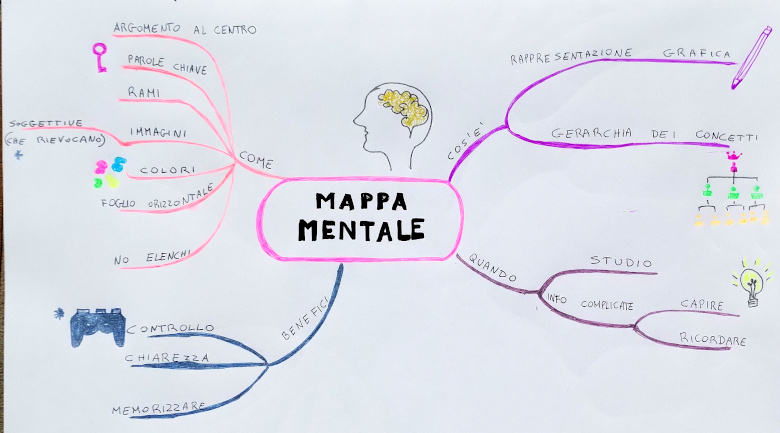 MAPPA
MENTALE
COS'E'
RAPPRESENTAZIONE GRAFICA
GERARCHIA DEI CONCETTI
QUANDO
STUDIO
INFO COMPLICATE
CAPIRE
RICORDARE
BENEFICI
CONTROLLO
CHIAREZZA
MEMORIZZARE
COME
ARGOMENTO AL CENTRO
PAROLE CHIAVE
RAMI
IMMAGINI
SOGGETTIVE
(CHE RIEVOCANO)
*
COLORI
FOGLIO ORIZZONTALE
NO ELENCHI
*